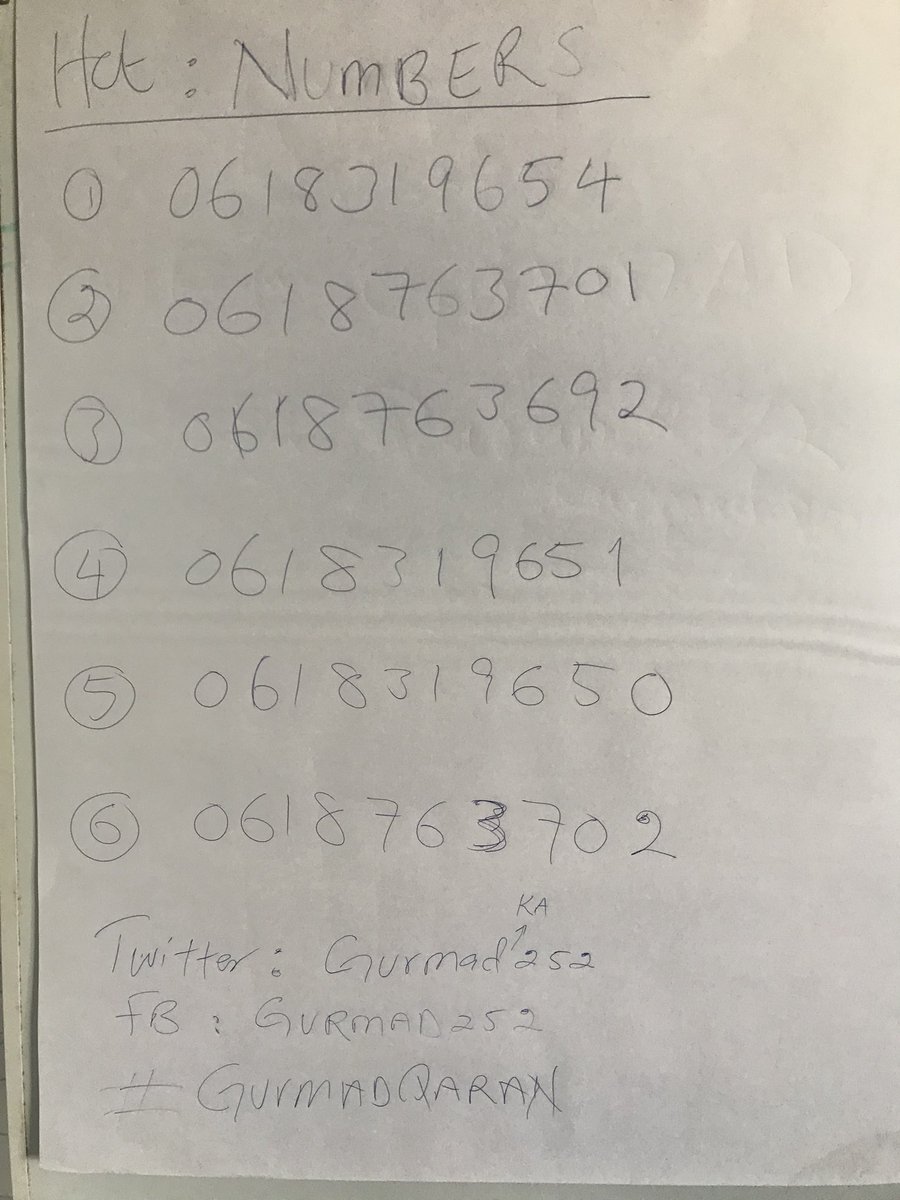 Hot : NUMBERS
① 0618319654
② 0618763701
③ 0618763692
④ 0618319651
⑤ 0618319650
⑥ 0618763702
KA
Twitter : Gurmad 252
FB : GURMAD252
# GURMADQARAN